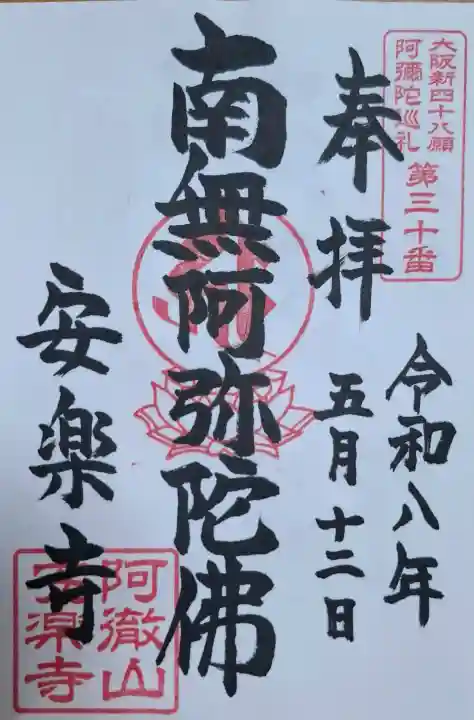 大阪新四十八願
阿彌陀巡礼 第三十番
奉拝
令和八年
五月十二日
南無阿弥陀佛
安楽寺
阿徹山
安楽寺